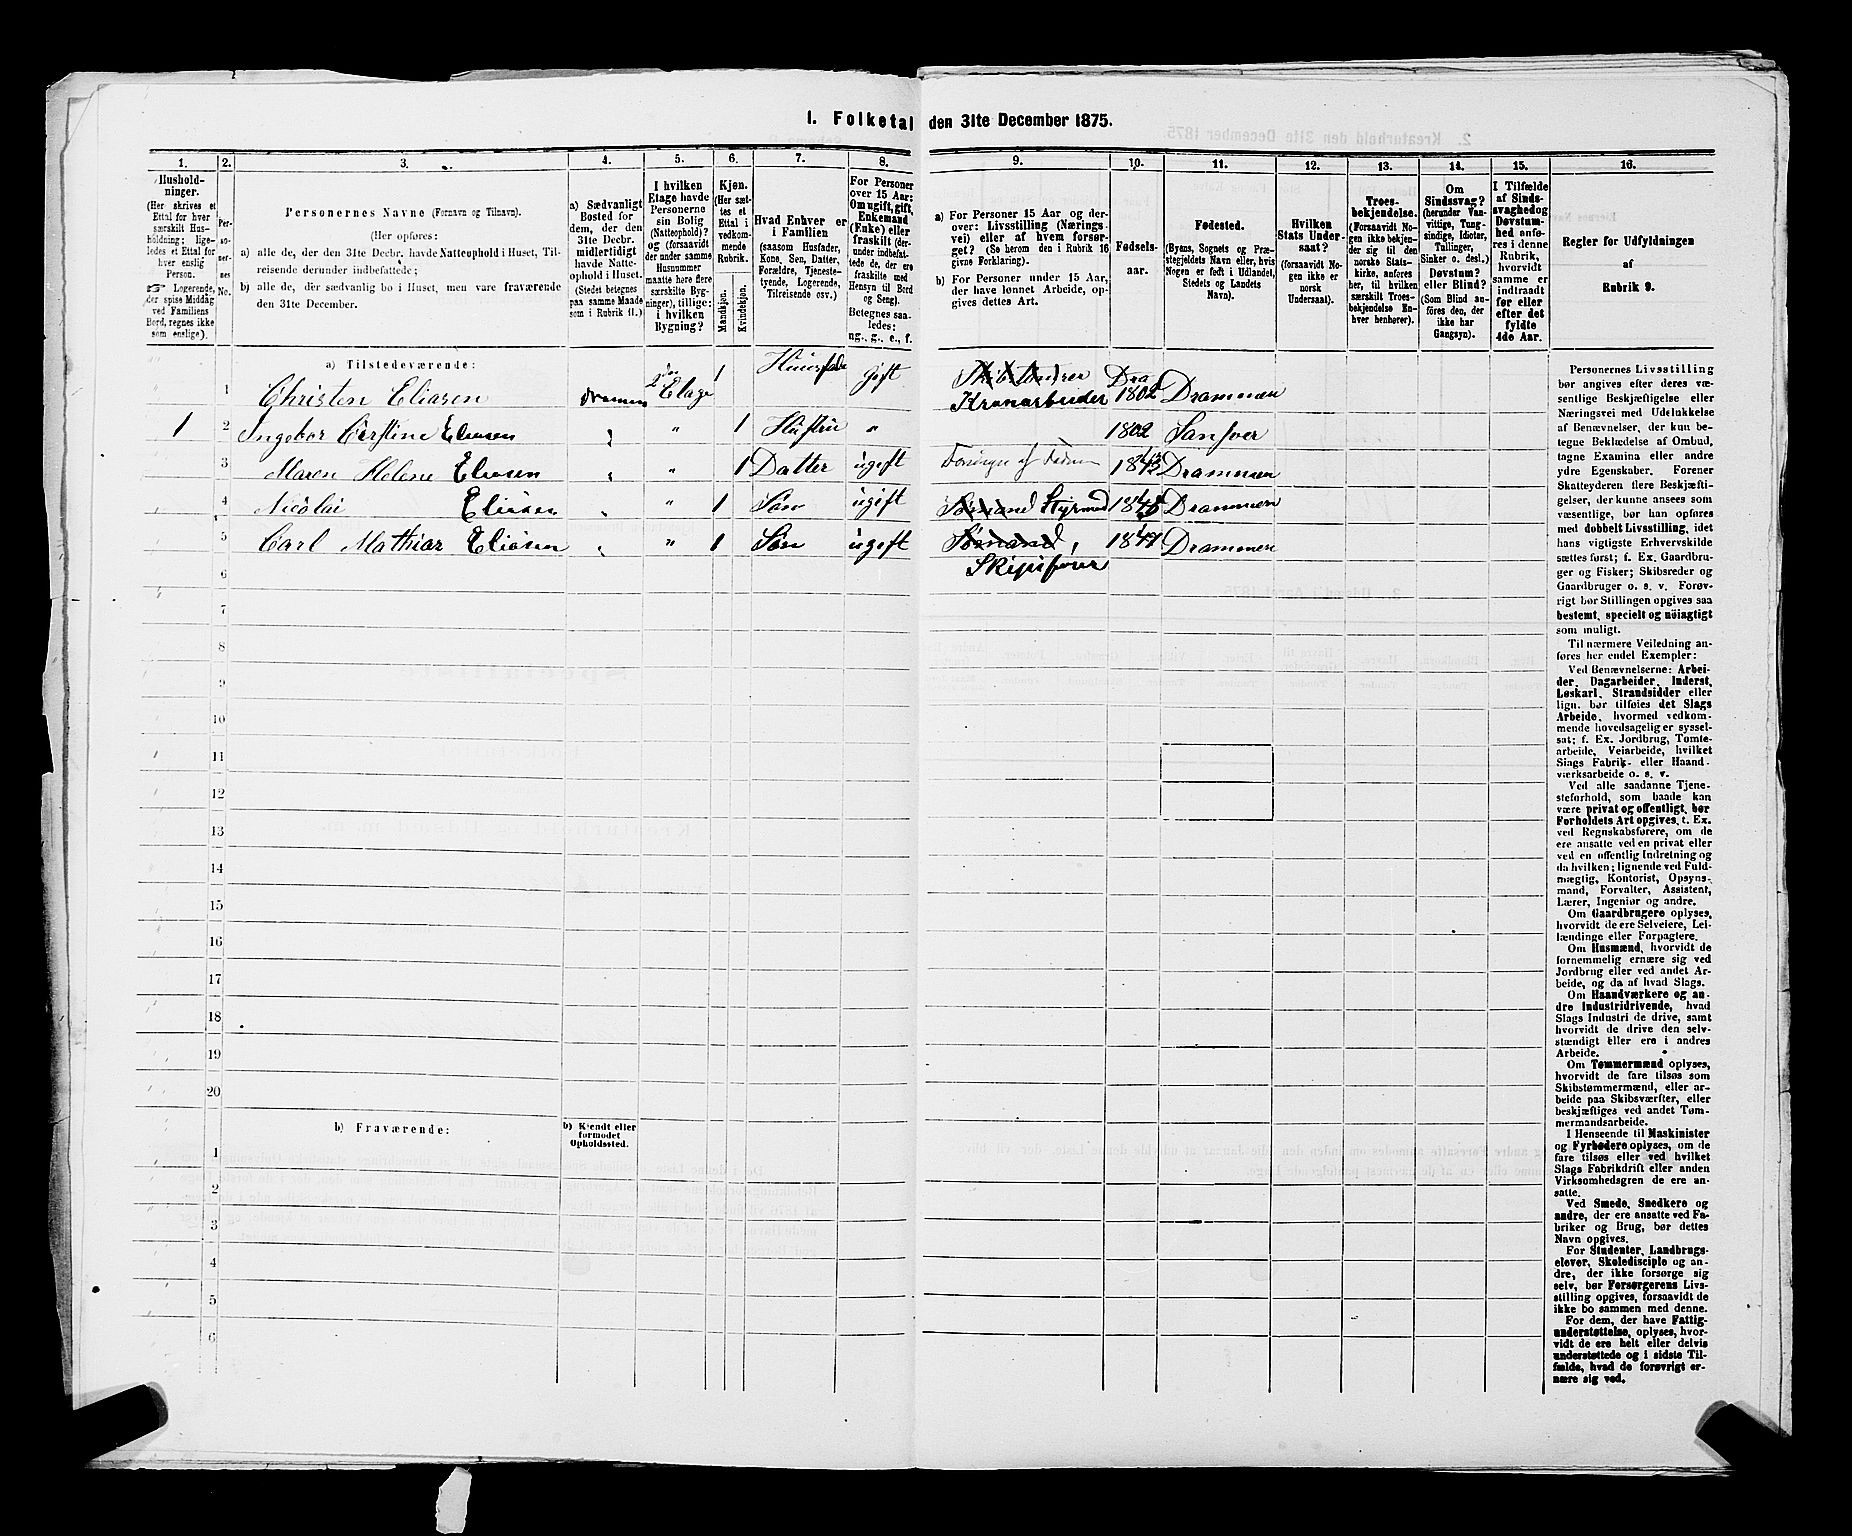 1. Folketal den 31te December 1875.
1. 2. 3. 4. 5. 6. 7. 8. 9. 10. 11. 12. 13. 14. 15. 16.
Hushold-
ninger.
(Her skrives et
Ettal for hver
særskilt Hus-
holdning; lige-
ledes et Ettal for
hver enslig
Person.
☞ Logerende,
der spise Middag
ved Familiens
Bord, regnes ikke
som enslige).
Per-
so-
ner-
nes
No.
Personernes Navne (Fornavn og Tilnavn).
(Her opføres:
a) alle de, der den 31te Decbr. havde Natteophold i Huset, Til-
reisende derunder indbefattede;
b) alle de, der sædvanlig bo i Huset, men vare fraværende
den 31te December.
a) Sædvanligt
Bosted for
dem, der den
31te Decbr.
midlertidigt
havde Natte-
ophold i Huset.
(Stedet betegnes
paa samme Maade
som i Rubrik 11.)
I hvilken
Etage havde
Personerne
sin Bolig
(Natteophold)?
og (forsaavidt
der under samme
Husnummer
maatte høre flere
særskilte Byg-
ninger), tillige:
i hvilken
Bygning?
Kjøn.
(Her sæt-
tes et
Ettal i
vedkom-
mende
Rubrik.
Mandkjøn.
Kvindekjøn.
Hvad Enhver er
i Familien
(saasom Husfader,
Kone, Søn, Datter,
Forældre, Tjeneste-
tyende, Logerende,
Tilreisende osv.)
For Personer
over 15 Aar:
Om ugift, gift,
Enkemand
(Enke) eller
fraskilt (der-
under indbefat-
tede de, der ere
fraskilte med
Hensyn til Bord
og Seng).
Betegnes saa-
ledes:
ug., g., e., f.
a) For Personer 15 Aar og der-
over: Livsstilling (Nærings-
vei) eller af hvem forsør-
get? (Se herom den i Rubrik 16
givne Forklaring).
b) For Personer under 15 Aar,
der have lønnet Arbeide, op-
gives dettes Art.
Fødsels-
aar.
Fødested.
(Byens, Sognets og Præ-
stegjeldets Navn eller, hvis
Nogen er født i Udlandet,
Stedets og Landets
Navn).
Hvilken
Stats Under-
saat?
(forsaavidt No-
gen ikke er
norsk
Undersaat).
Troes-
bekjendelse.
(Forsaavidt No-
gen ikke bekjen-
der sig til den
norske Stats-
kirke, anføres
her, til hvilken
særskilt Troes-
bekjendelse En-
hver henhører).
Om
Sindssvag?
(herunder Van-
vittige, Tung-
sindige, Idioter,
Tullinger,
Sinker o. desl.)
Døvstum?
eller Blind?
(Som Blind an-
føres den, der
ikke har
Gangsyn).
I Tilfælde
af Sinds-
svaghed og
Døvstum-
hed anfø-
res i denne
Rubrik,
hvorvidt
samme er
indtraadt
før eller
efter det
fyldte
4de Aar.
Regler for Udfyldningen
af
Rubrik 9.
a) Tilstedeværende:
1 Christen Eliasen Dramen 2den Etage 1 Huusfader gift Kronarbeider 1802 Drammen
1 2 Ingebor Eliasen " 1 Hustru " 1802
3 Maren Helene Eliasen " 1 Datter ugift 1843 Drammen
4 Nicolai Eliasen " 1 Søn ugift Sømand Styrmd Drammen
5 Carl Mathias Eliasen " 1 Søn ugift Sømand, 1847 Drammen
6 Skipsfører
7
8
9
10
11
12
13
14
15
16
17
18
19
20
b) Fraværende:
b) Kjendt eller
formodet
Opholdssted.
1
2
3
4
5
6
Personernes Livsstilling
bør angives efter deres væ-
sentlige Beskjæftigelse eller
Næringsvei med Udelukkelse
af Benævnelser, der kun be-
tegne Beklædelse af Ombud,
tagne Examina eller andre
ydre Egenskaber. Forener
Skatteyderen flere Beskjæfti-
gelser, der kunne ansees som
væsentlige, bør han opføres
med dobbelt Livsstilling, idet
hans vigtigste Erhvervskilde
sættes først; f. Ex. Gaardbru-
ger og Fisker; Skibsreder og
Gaardbruger o. s. v. Forøv-
rigt bør Stillingen opgives saa
bestemt, specielt og nöiagtigt
som muligt.
Til nærmere Veiledning an-
føres her endel Exempler:
Ved Benævnelserne: Arbei-
der, Dagarbeider, Inderst,
Løskarl, Strandsidder eller
lign. bør tilføies det Slags
Arbeide, hvormed vedkom-
mende hovedsagelig er syssel-
sat; f. Ex. Jordbrug, Tømte-
arbeide, Veiarbeide, hvilket
Slags Fabrik- eller Haand-
værksarbeide o. s. v.
Ved alle saadanne Tjene-
steforhold, som baade kan
være privat og offentligt, bør
Forholdets Art opgives, t. Ex.
ved Regnskabsførere, om de
ere ansatte ved en privat eller
ved en offentlig Indretning og
da hvilken; lignende ved Fuld-
mægtig, Kontorist, Opsyns-
mand, Forvalter, Assistent,
Lærer, Ingeniør og andre.
Om Gaardbrugere oplyses,
hvorvidt de ere Selveiere, Lei-
lændinge eller Forpagtere.
Om Husmænd, hvorvidt de
fornemmelig ernære sig ved
Jordbrug eller ved andet Ar-
beide, og da af hvad Slags.
Om Haandværkere og an-
dre Industridrivende, hvad
Slags Industri de drive, samt
hvorvidt de drive den selv-
stændigt eller ere i andres
Arbeide.
Om Tømmermænd oplyses,
hvorvidt de fare tilsøs som
Skibstømmermænd, eller ar-
beide paa Skibsværfter, eller
beskjæftiges ved andet Tøm-
mermandsarbeide.
I Henseende til Maskinister
og Fyrbødere oplyses, om de
fare tilsøs eller ved hvilket
Slags Fabrikdrift eller anden
Virksomhedsgren de ere an-
satte.
Ved Smede, Snedkere og
andre, der ere ansatte ved Fa-
briker og Brug, bør dettes
Navn opgives.
For Studenter, Landbrugs-
elever, Skoledisciple og an-
dre, der ikke forsørge sig
selv, bør Forsørgerens Livs-
stilling opgives, forsaavidt de
ikke bo sammen med denne.
For dem, der have Fattig-
understøttelse, oplyses, hvor-
vidt de ere helt eller delvis
understøttede og i sidste Til-
fælde, hvad de forøvrigt er-
nære sig ved.